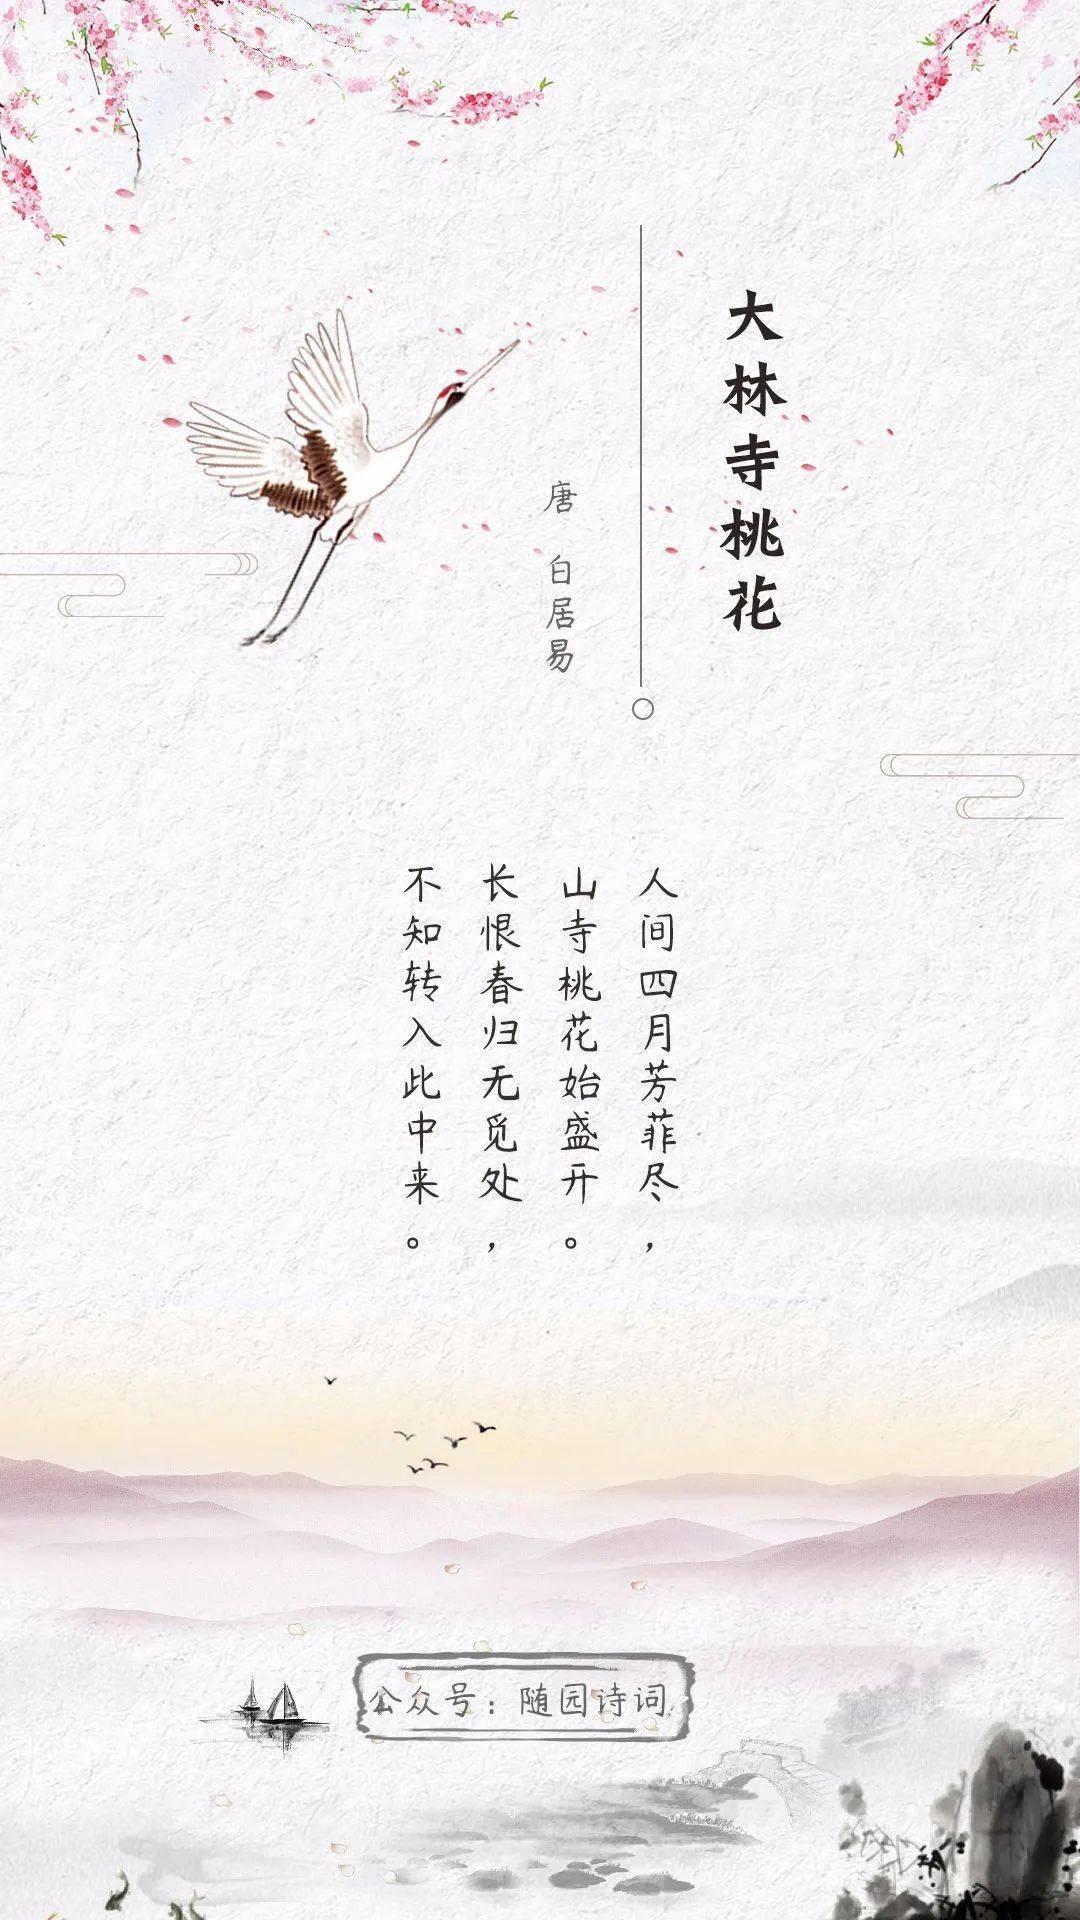 大林寺桃花
唐 白居易
人间四月芳菲尽，
山寺桃花始盛开。
长恨春归无觅处，
不知转入此中来。
公众号：随园诗词